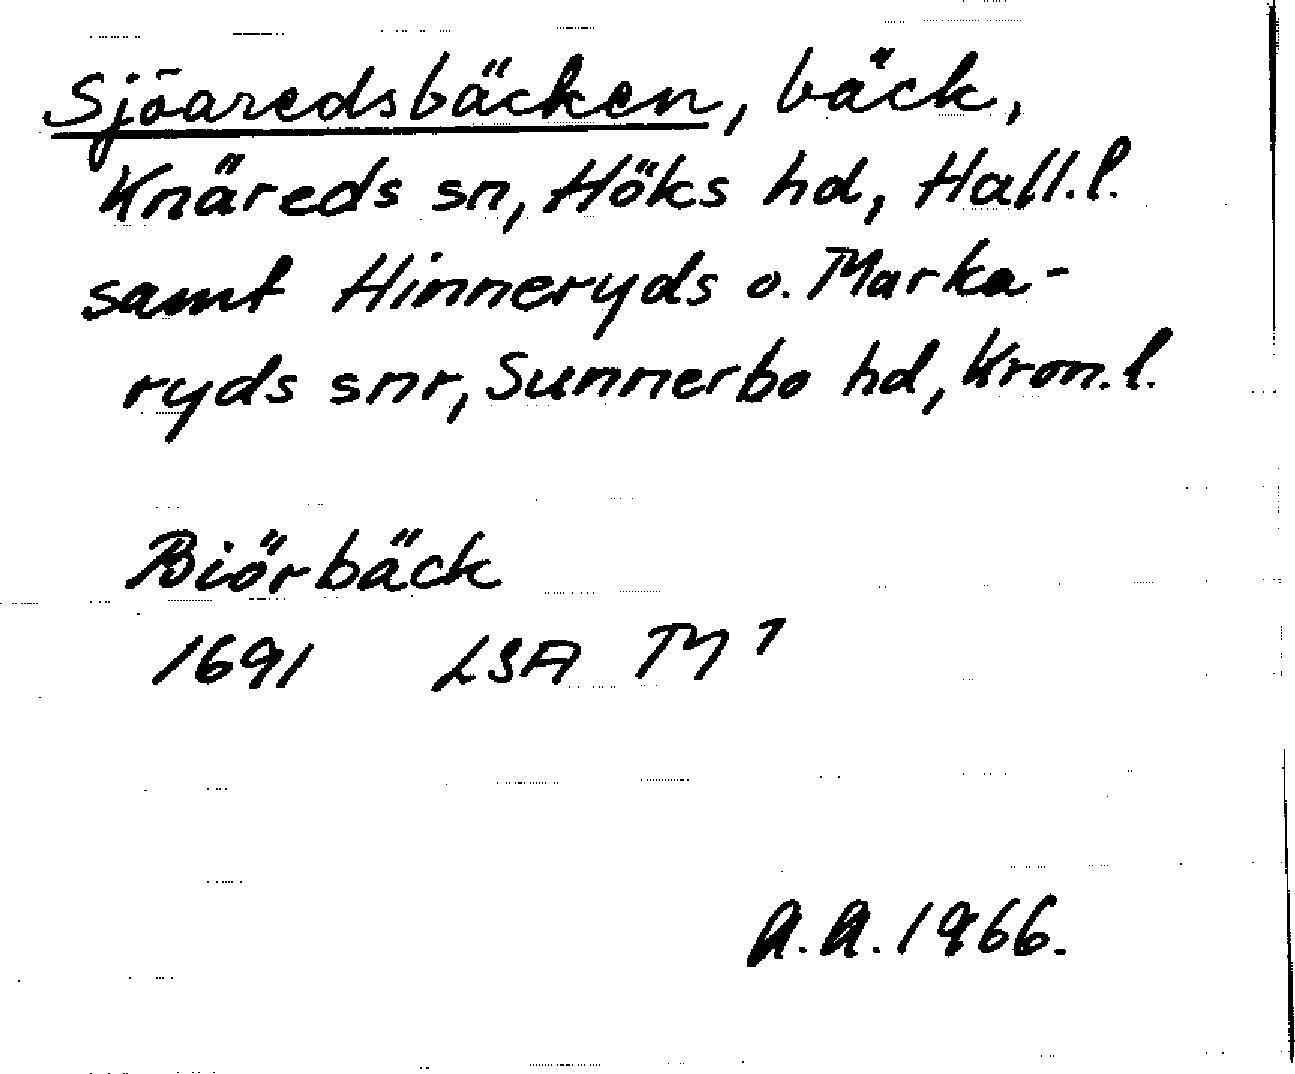 Sjöaredsbäcken, bäck,
Knäreds sn, Höks hd, Hall.l.
samt Hinneryds o. Marka-
ryds snr, Sunnerbo hd, Kron.l.
Biörbäck
1691 LSA M 7
A.A. 1966.